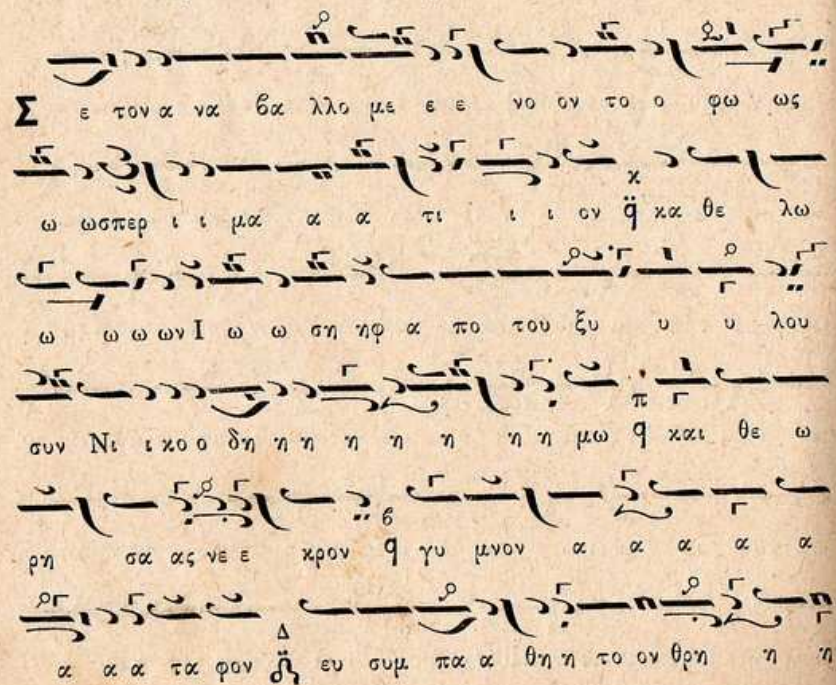 Σ ε τον α να βα λλο με ε ε νο ον το ο φω ως
ω ωσπερ ι ι μα α α τι ι ι ον κα θε λω
ω ω ω ων Ι ω ω ση ηφ α πο του ξυ υ υ λου
συν Νι ι κο ο δη η η η η η η η μω και θε ω
ρη σα ας νε ε κρον γυ μνον α α α α α
α α α τα φον ευ συμ πα α θη η το ον θρη η η